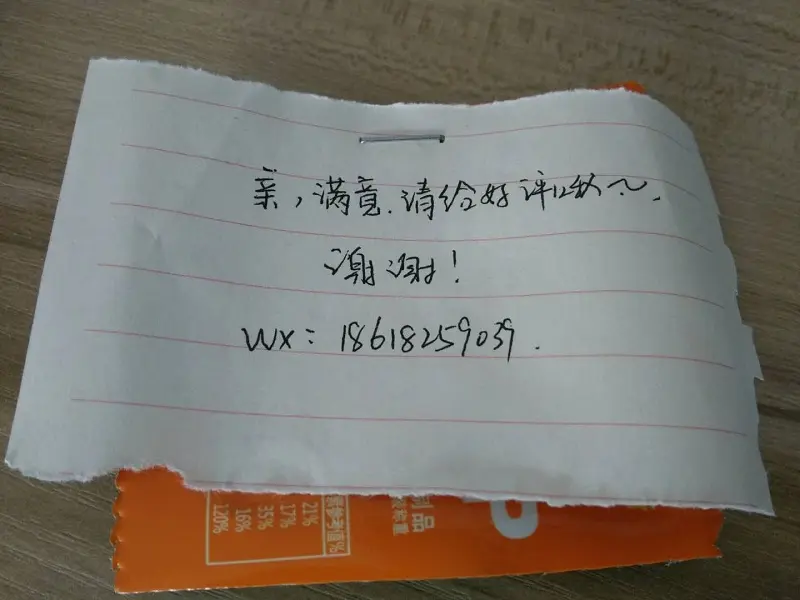 亲,满意.请给好评哦~.
谢谢!
WX: 18618259039.
养参考值%
21%
17%
35%
16%
120%
品